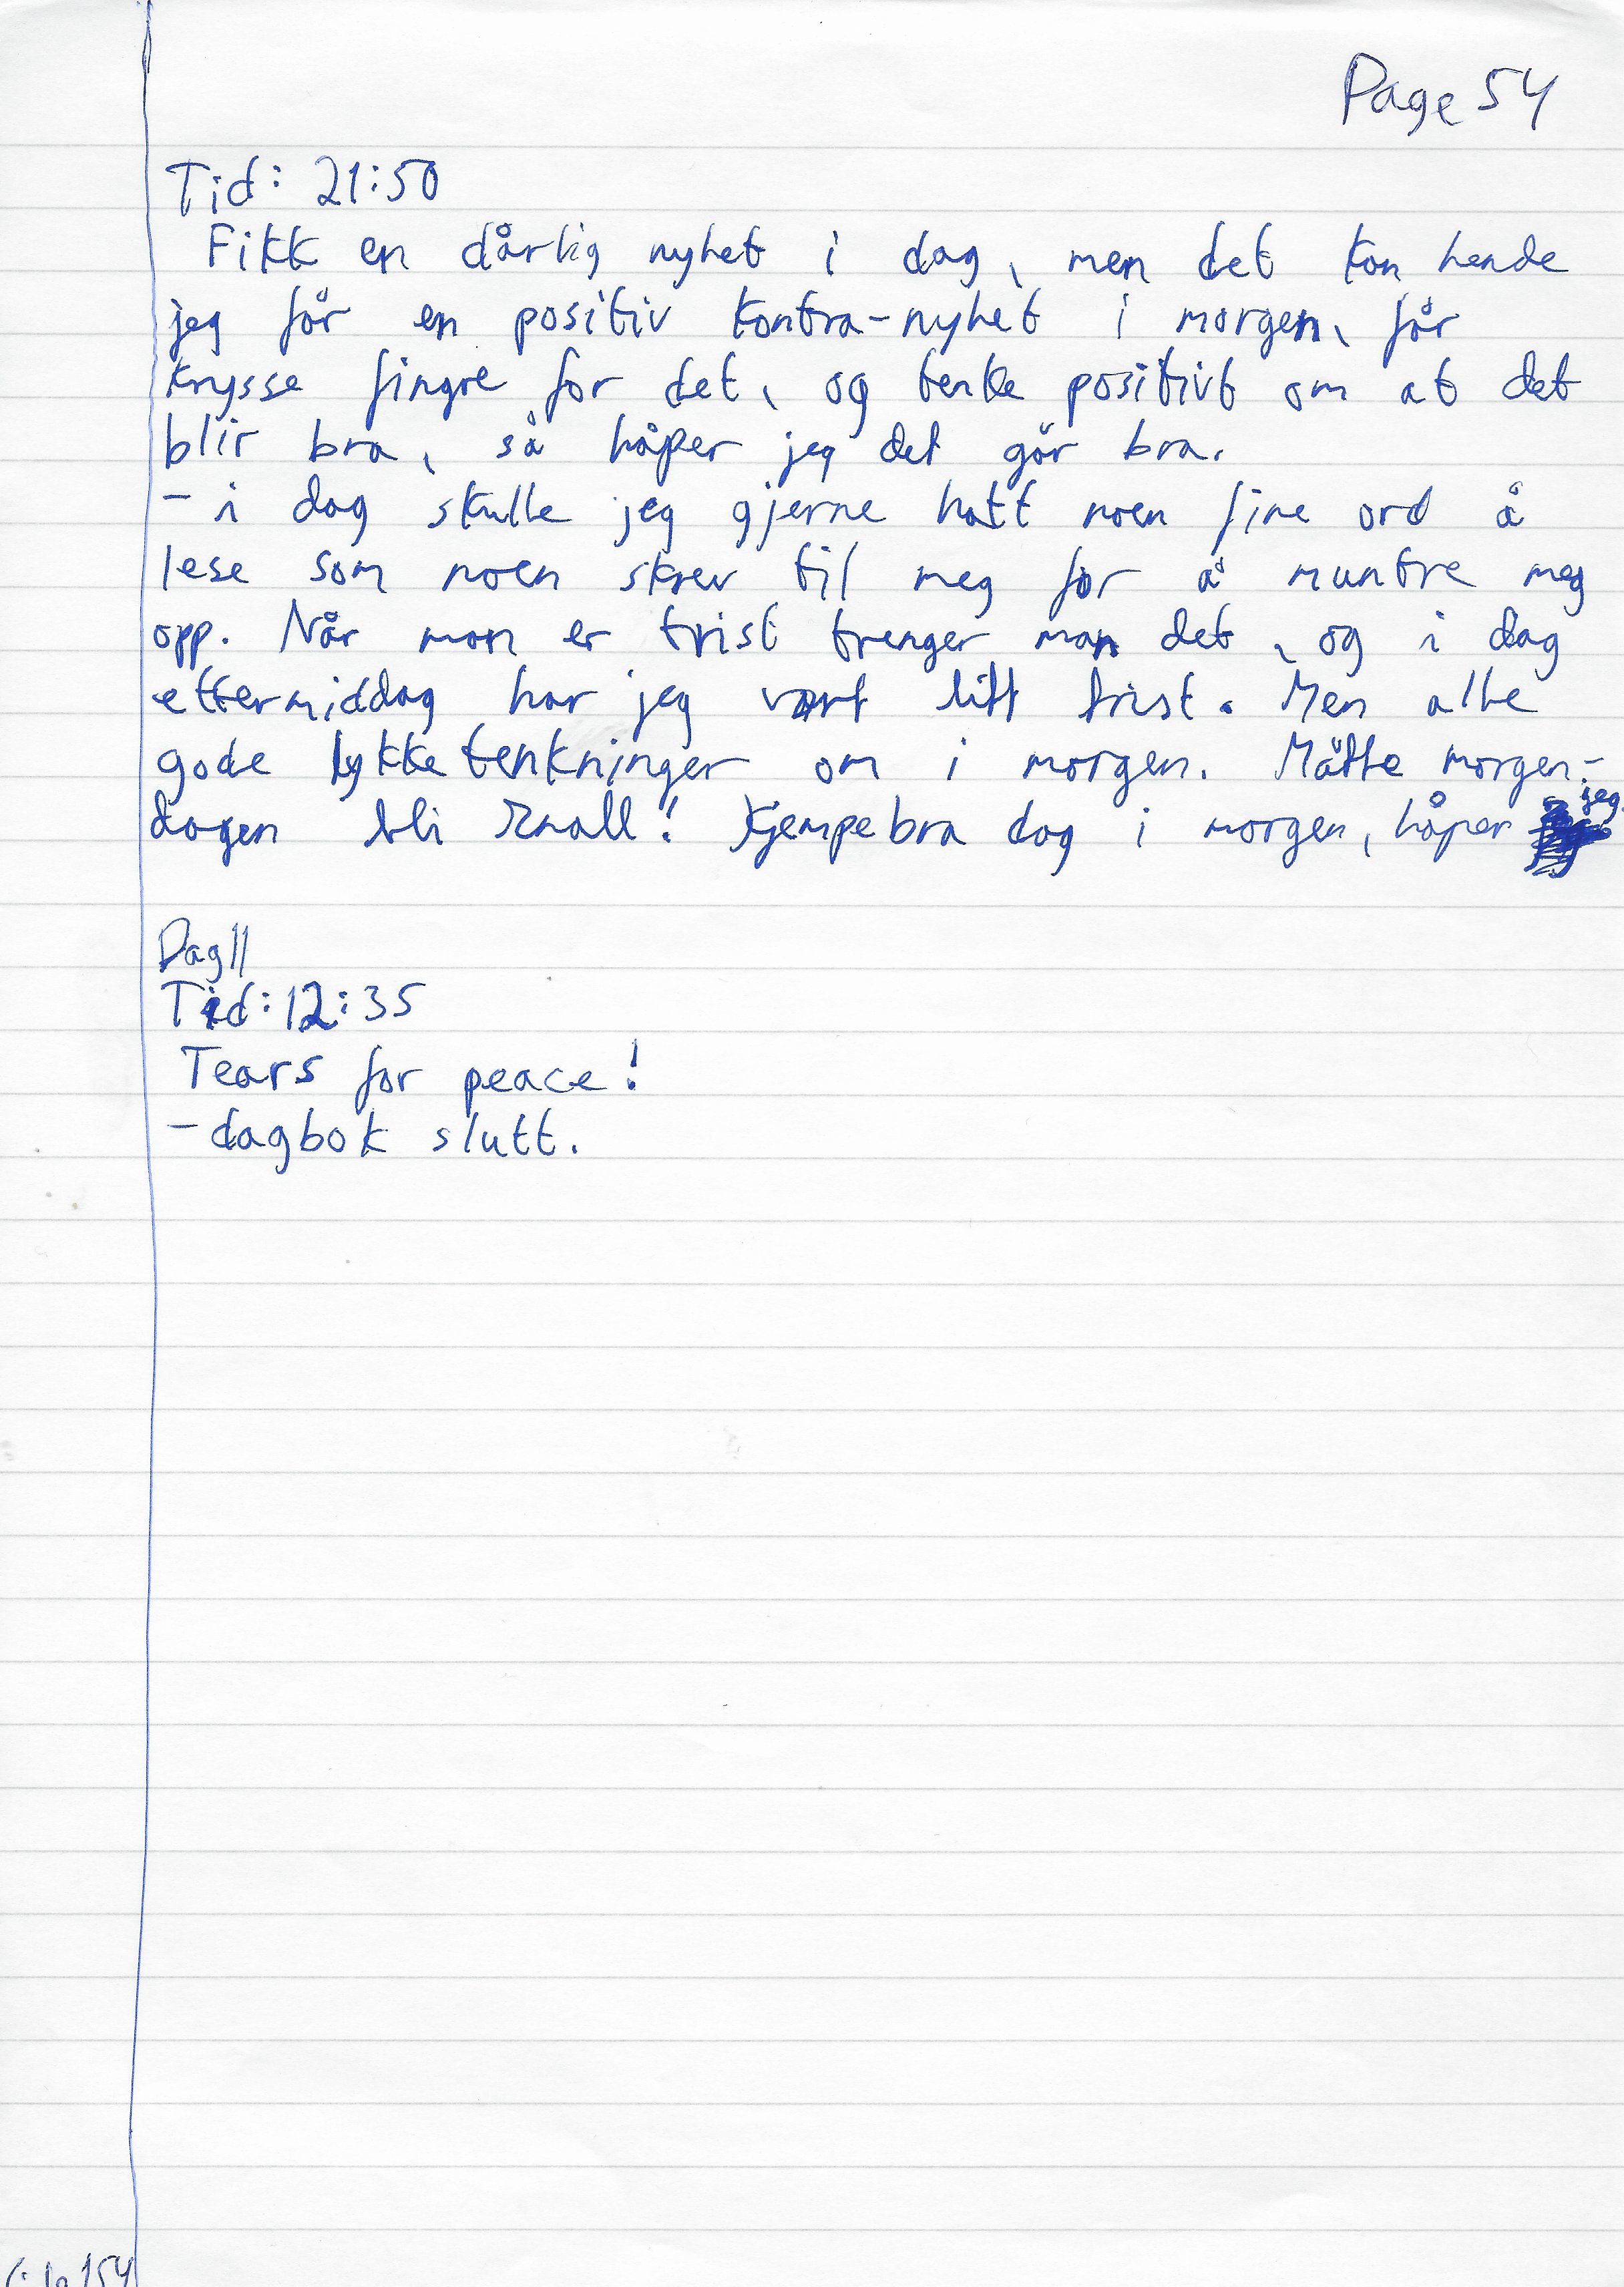 Page 54
Tid: 21:50
Fikk en dårlig nyhet i dag, men det kan hende
jeg får en positiv kontra-nyhet i morgen, får
krysse fingre for det, og tenke positivt om at det
blir bra, så håper jeg det går bra.
- i dag skulle jeg gjerne hatt noen fine ord å
lese som noen skrev til meg for å muntre meg
opp. Når man er trist trenger man det, og i dag
ettermiddag har jeg vært litt trist. Men alle
gode lykketenkninger om i morgen. Måtte morgen-
dagen bli knall! Kjempebra dag i morgen, håper jeg.
Dag 11
Tid: 12:35
Tears for peace!
- dagbok slutt.